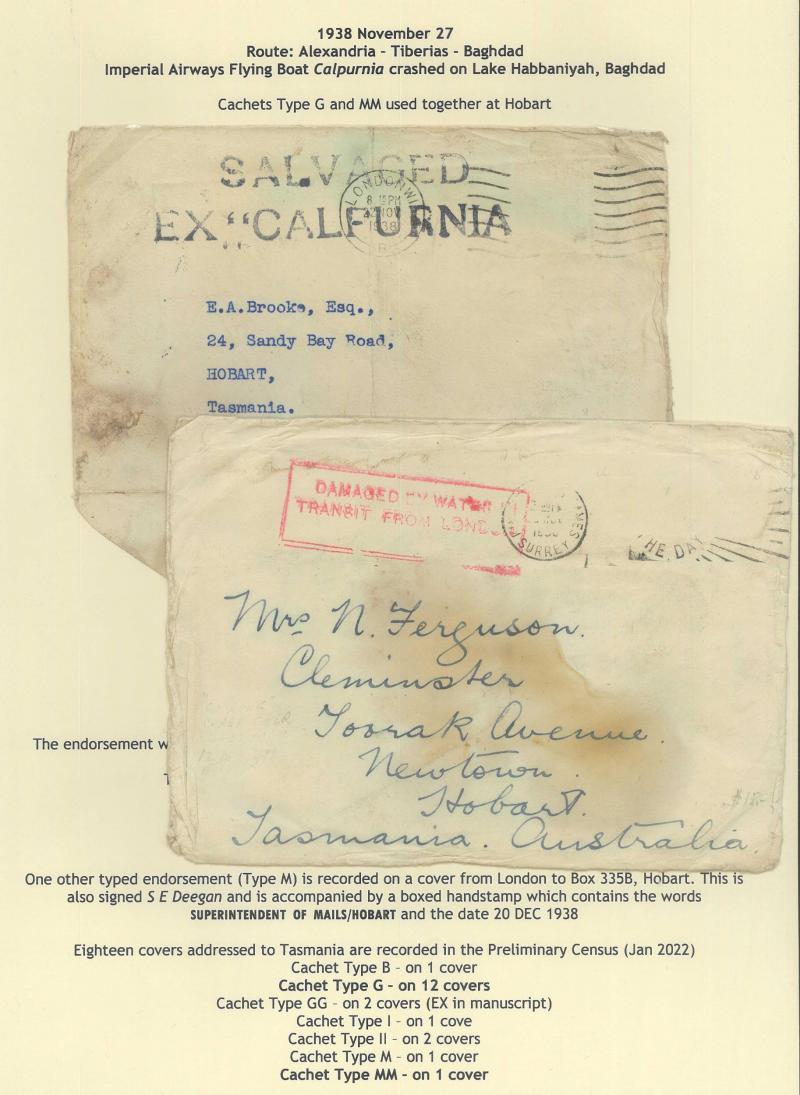 1938 November 27
Route: Alexandria - Tiberias - Baghdad
Imperial Airways Flying Boat Calpurnia crashed on Lake Habbaniyah, Baghdad
Cachets Type G and MM used together at Hobart
SALVAGED
EX "CALPURNIA
LONDON W1
8 15 PM
NOV
1938
E.A.Brooke, Esq.,
24, Sandy Bay Road,
HOBART,
Tasmania.
DAMAGED BY WATER
TRANSIT FROM LONDON
SURREY
THE DAY
Mrs N. Ferguson.
Cleminster
Toorak Avenue.
Newtown.
Hobart.
Tasmania. Australia.
The endorsement w
One other typed endorsement (Type M) is recorded on a cover from London to Box 335B, Hobart. This is
also signed S E Deegan and is accompanied by a boxed handstamp which contains the words
SUPERINTENDENT OF MAILS/HOBART and the date 20 DEC 1938
Eighteen covers addressed to Tasmania are recorded in the Preliminary Census (Jan 2022)
Cachet Type B - on 1 cover
Cachet Type G - on 12 covers
Cachet Type GG - on 2 covers (EX in manuscript)
Cachet Type I - on 1 cove
Cachet Type II - on 2 covers
Cachet Type M - on 1 cover
Cachet Type MM - on 1 cover